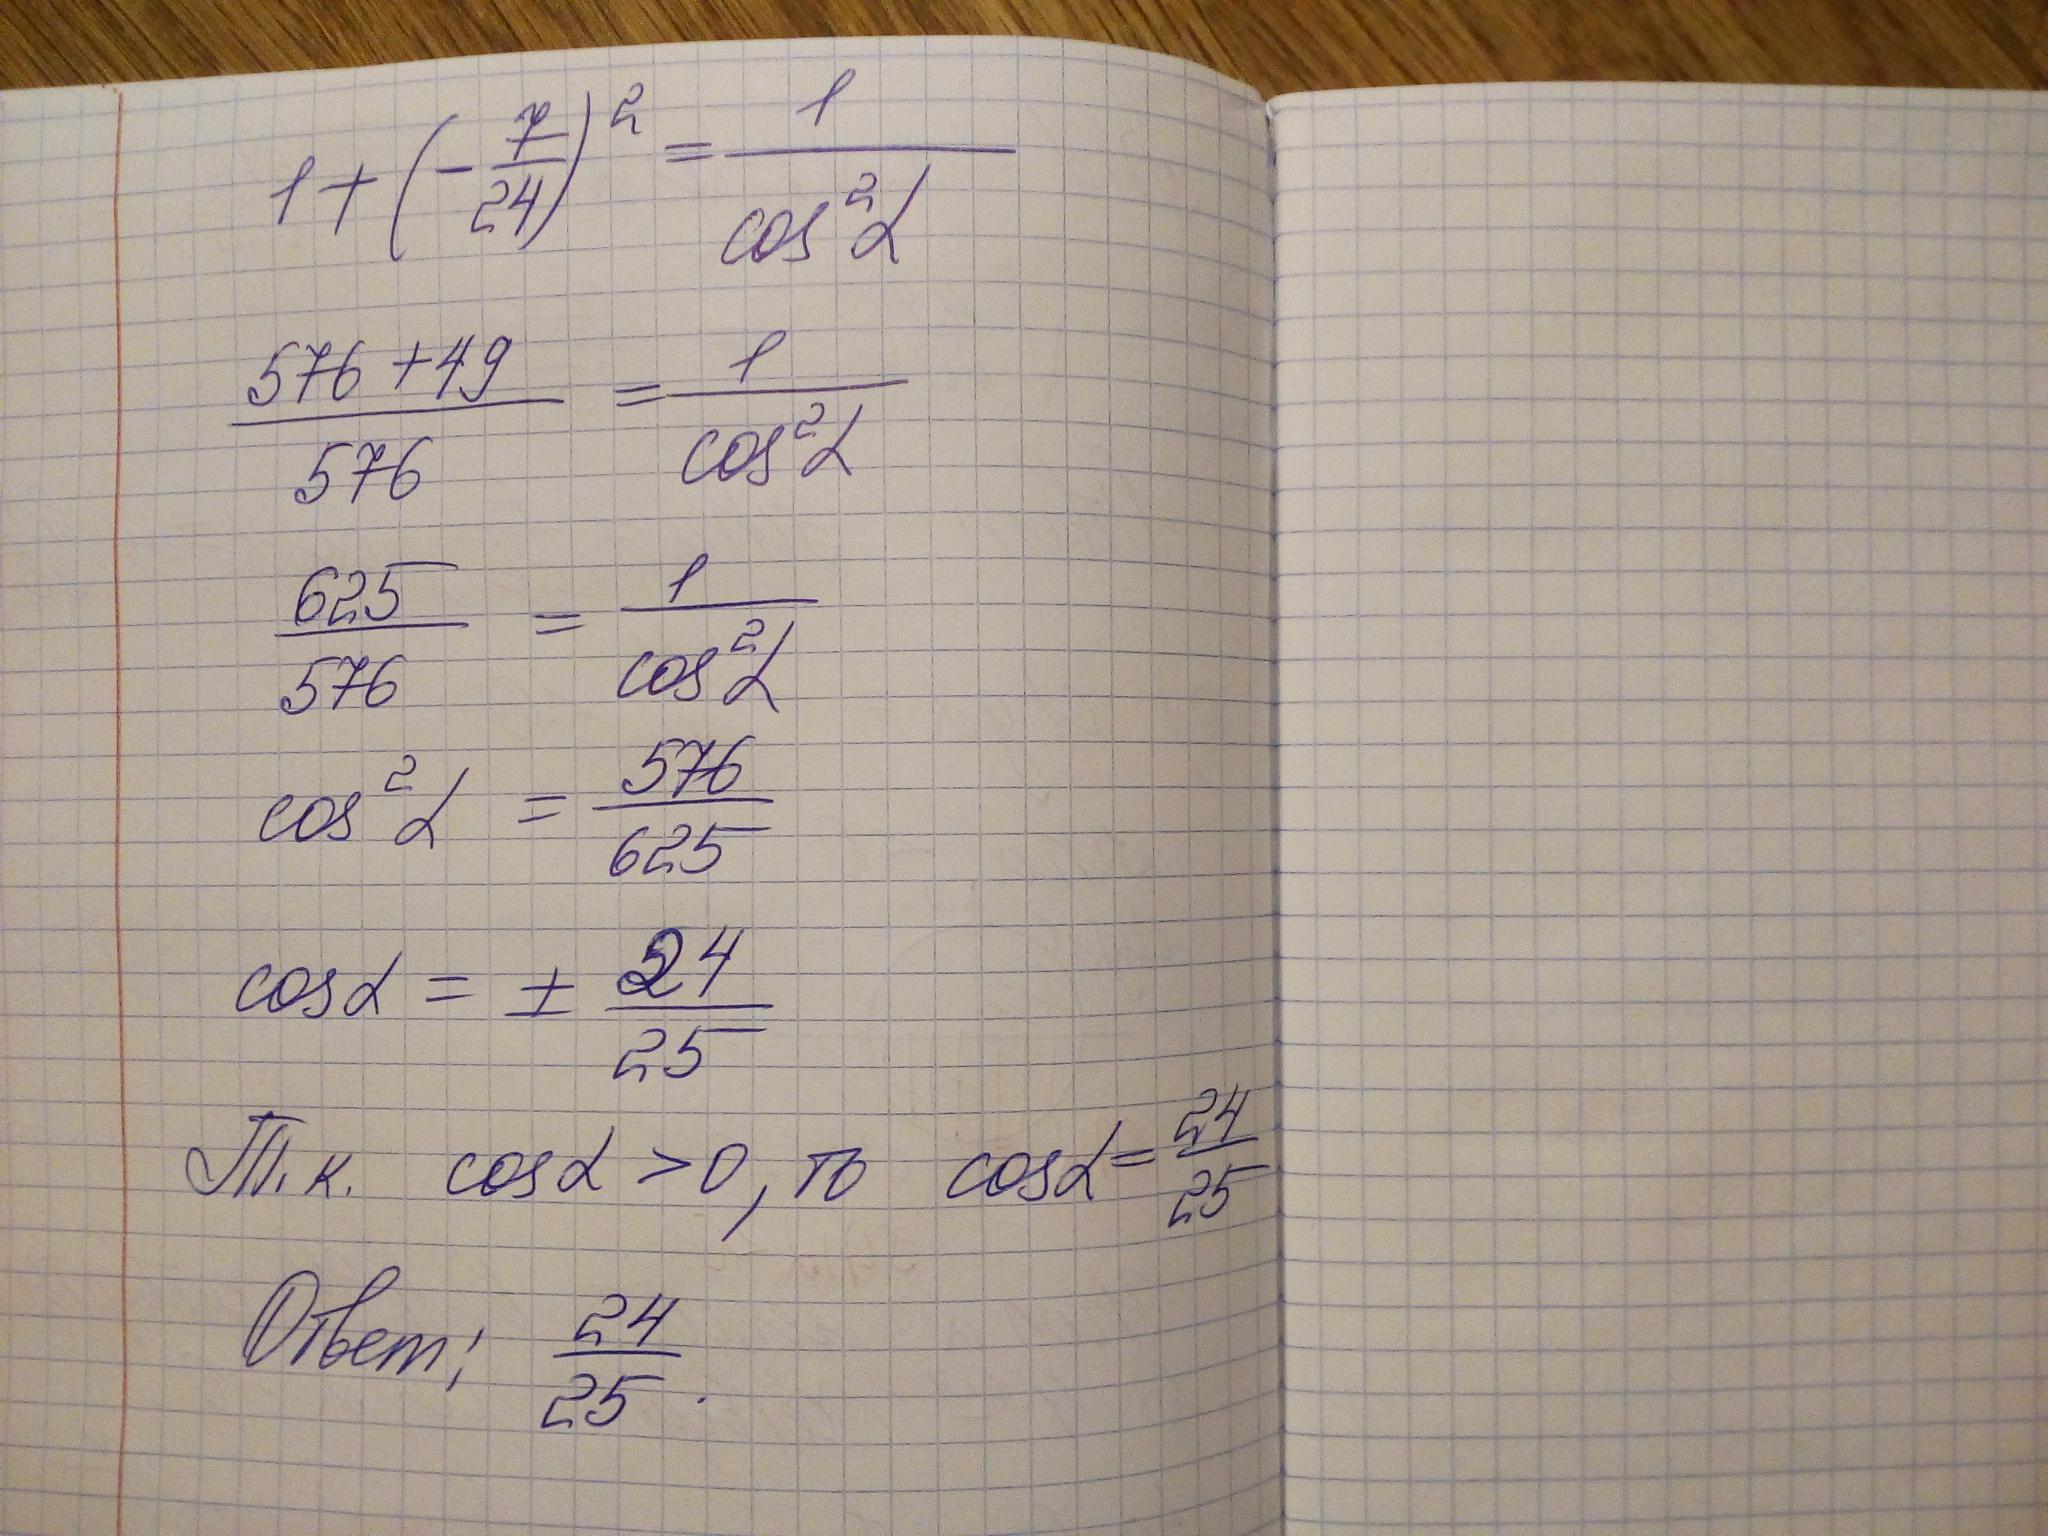 1 + (-7/24)² = 1/cos²α
(576 + 49)/576 = 1/cos²α
625/576 = 1/cos²α
cos²α = 576/625
cosα = ± 24/25
Т.к. cosα > 0, то cosα = 24/25
Ответ: 24/25.